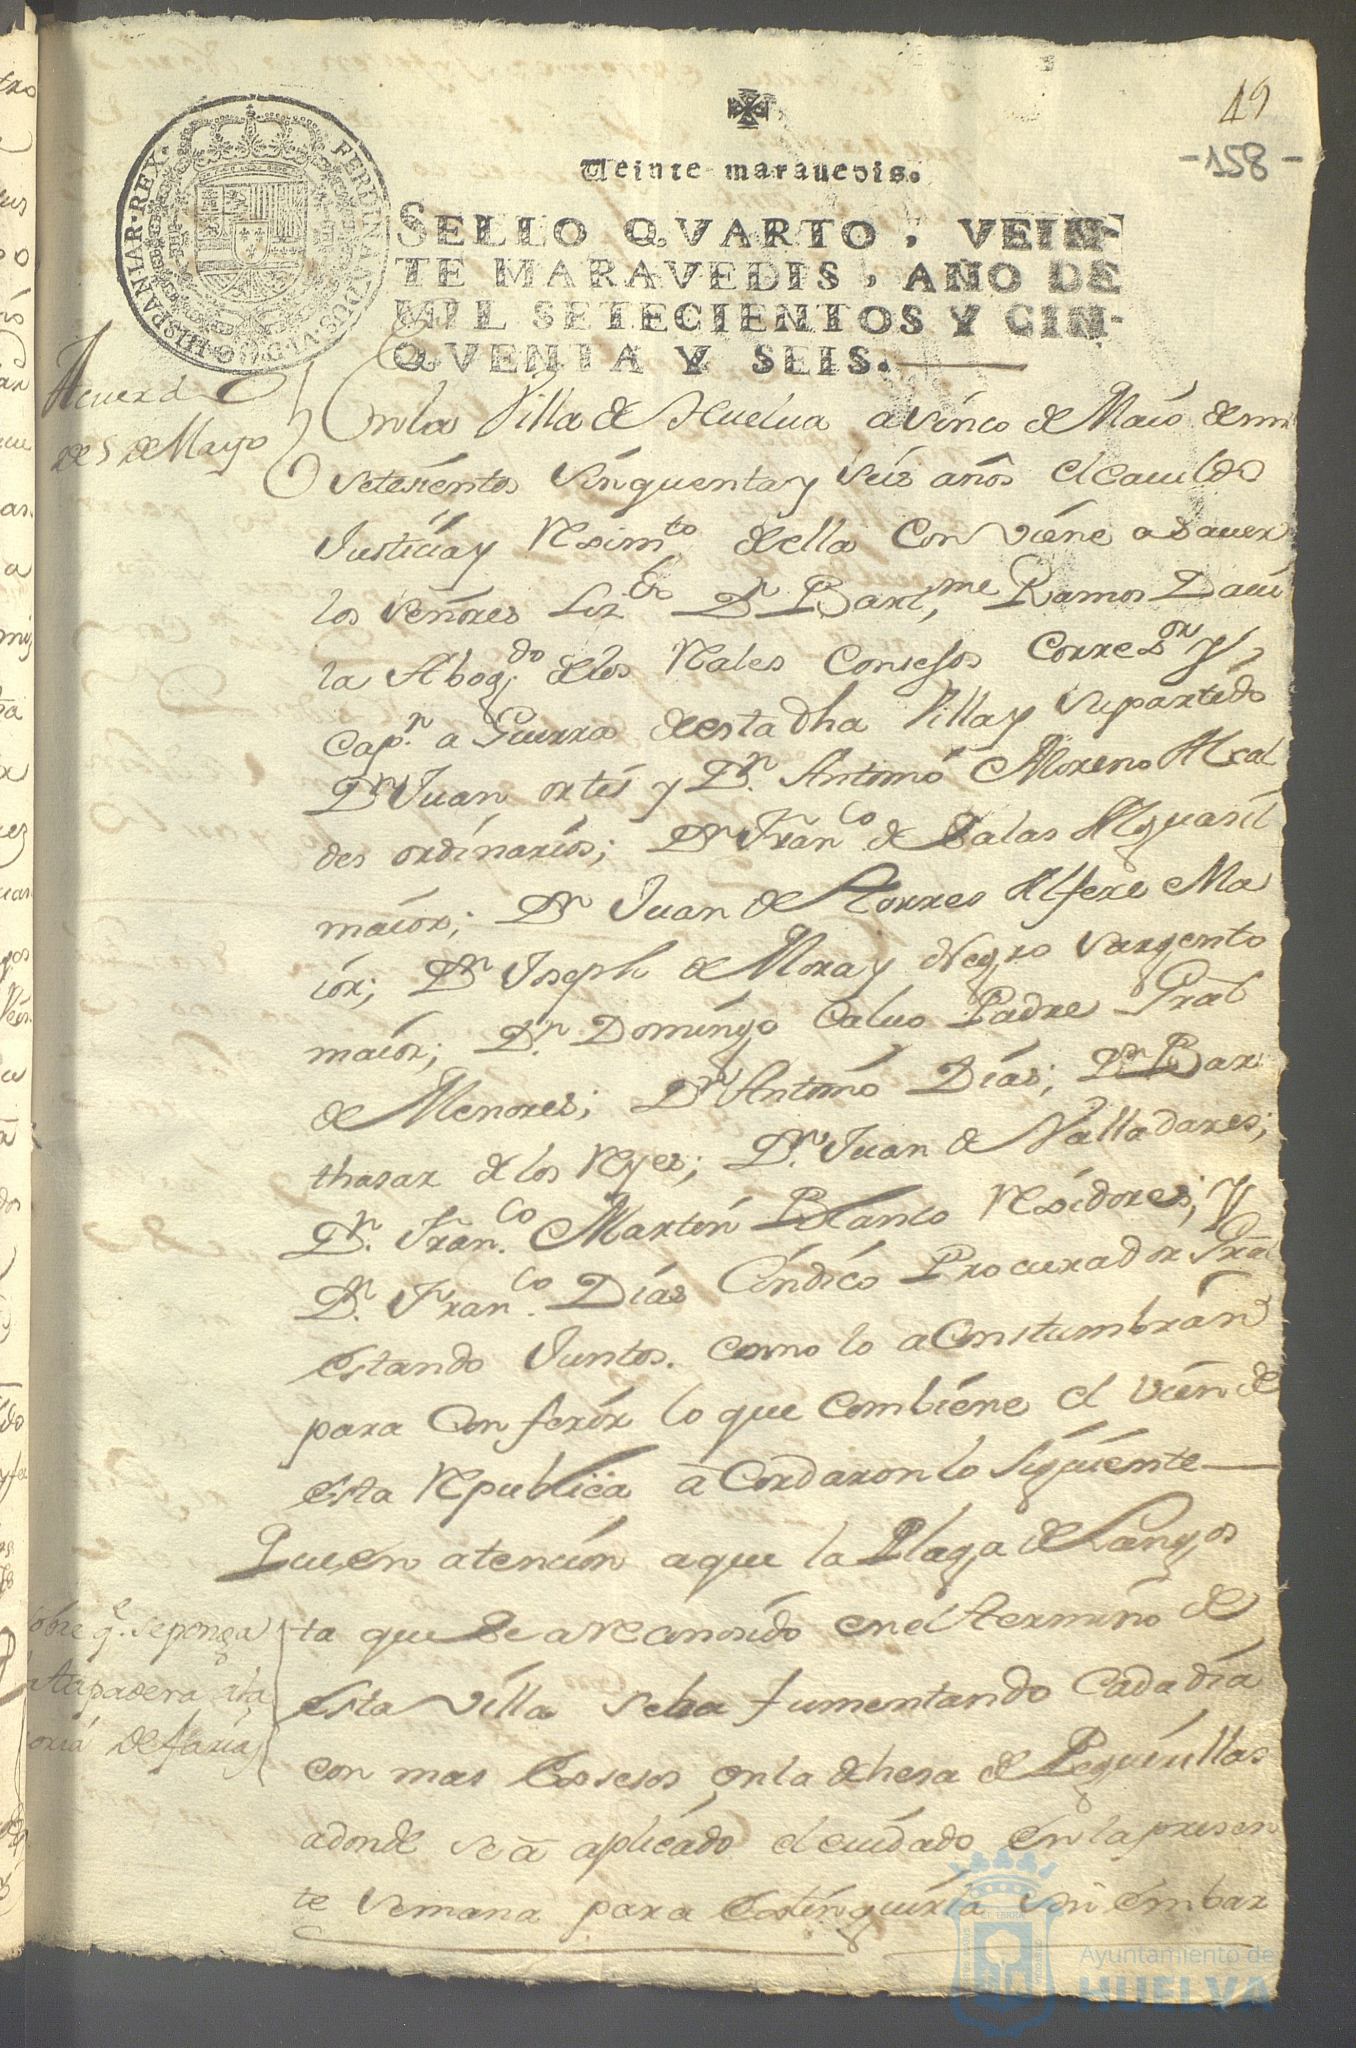 49
-158-
Veinte maravedis.
SELLO QVARTO, VEIN-
TE MARAVEDIS, AÑO DE
MIL SETECIENTOS Y CIN-
QVENTA Y SEIS.
FERDINANDUS·VI·D·G·HISPANIAR·REX·
Acuerdo
de 5 de Mayo
En la Villa de Huelua a Sinco de Maio de mil
setesientos sinquenta y seis años el Cauildo
Justicia y Reximto. della Con viene a Sauer
los señores Lizdo. Dn. Bartme. Ramos Daui
la Abogdo. de los Rales Consejos Corregor. y
Capn. a Guerra de esta dha Villa y su partido
Dn. Juan ortis y Dn. Antonio Moreno Alcal
des ordinarios; Dn. Franco. de Salas Alguasil
maior; Dn. Juan de Torres Alfere Ma
ior; Dn. Joseph de Mora y Negro Sargento
maior; Dn. Domingo Caluo Padre Gral
de Menores; Dn. Antonio Dias; Dn. Bal
thasar de los Reyes; Dn. Juan de Valladares;
Dn. Franco. Martin Blanco Rexidores; y
Dn. Franco. Dias Cindico Procurador Gral
estando Juntos. como lo aConstumbran
para Conferir lo que combiene el vien de
esta Republica aCordaron lo siguiente
Que en atencion a que la Plaga de Langos
ta que se a reconosido en el termino de
esta Villa se ha fumentando Cada dia
con mas Exsesos en la dehesa de Peguerillas
adonde se a aplicado el cuidado en la presen
te semana para extinguirla sin embar
obre q.e se ponga
Atapadera a la
oria de farias
Ayuntamiento de
HUELVA